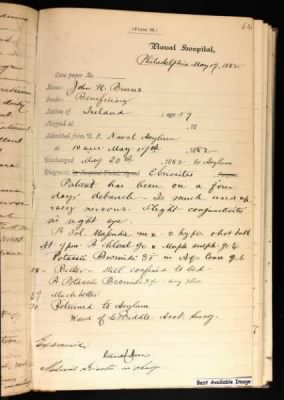 64
(Form H)
Naval Hospital,
Philadelphia May 17, 1882
Case paper No.
Name: John H. Burns
Grade: Beneficiary
Native of Ireland age: 57
Shipped at , 18
Admitted from U.S. Naval Asylum
10 a.m. May 17th 1882
Discharged May 20th 1882 to Asylum
Diagnosis: Ebrietas
Patient has been on a four
days' debauch – Is much used up
very nervous. Slight conjunctivitis
in right eye.
at 9 p.m. R Chloral gr. x Morph. sulph. gr.
Potassii Bromidi ʒi in Aq.
18 – Better – Still confined to bed –
R Potassii Bromidi ʒ
19 Much better
20 Returned to Asylum
Asst. Surg.
Examined:
Medical Director in charge
Best Available Image